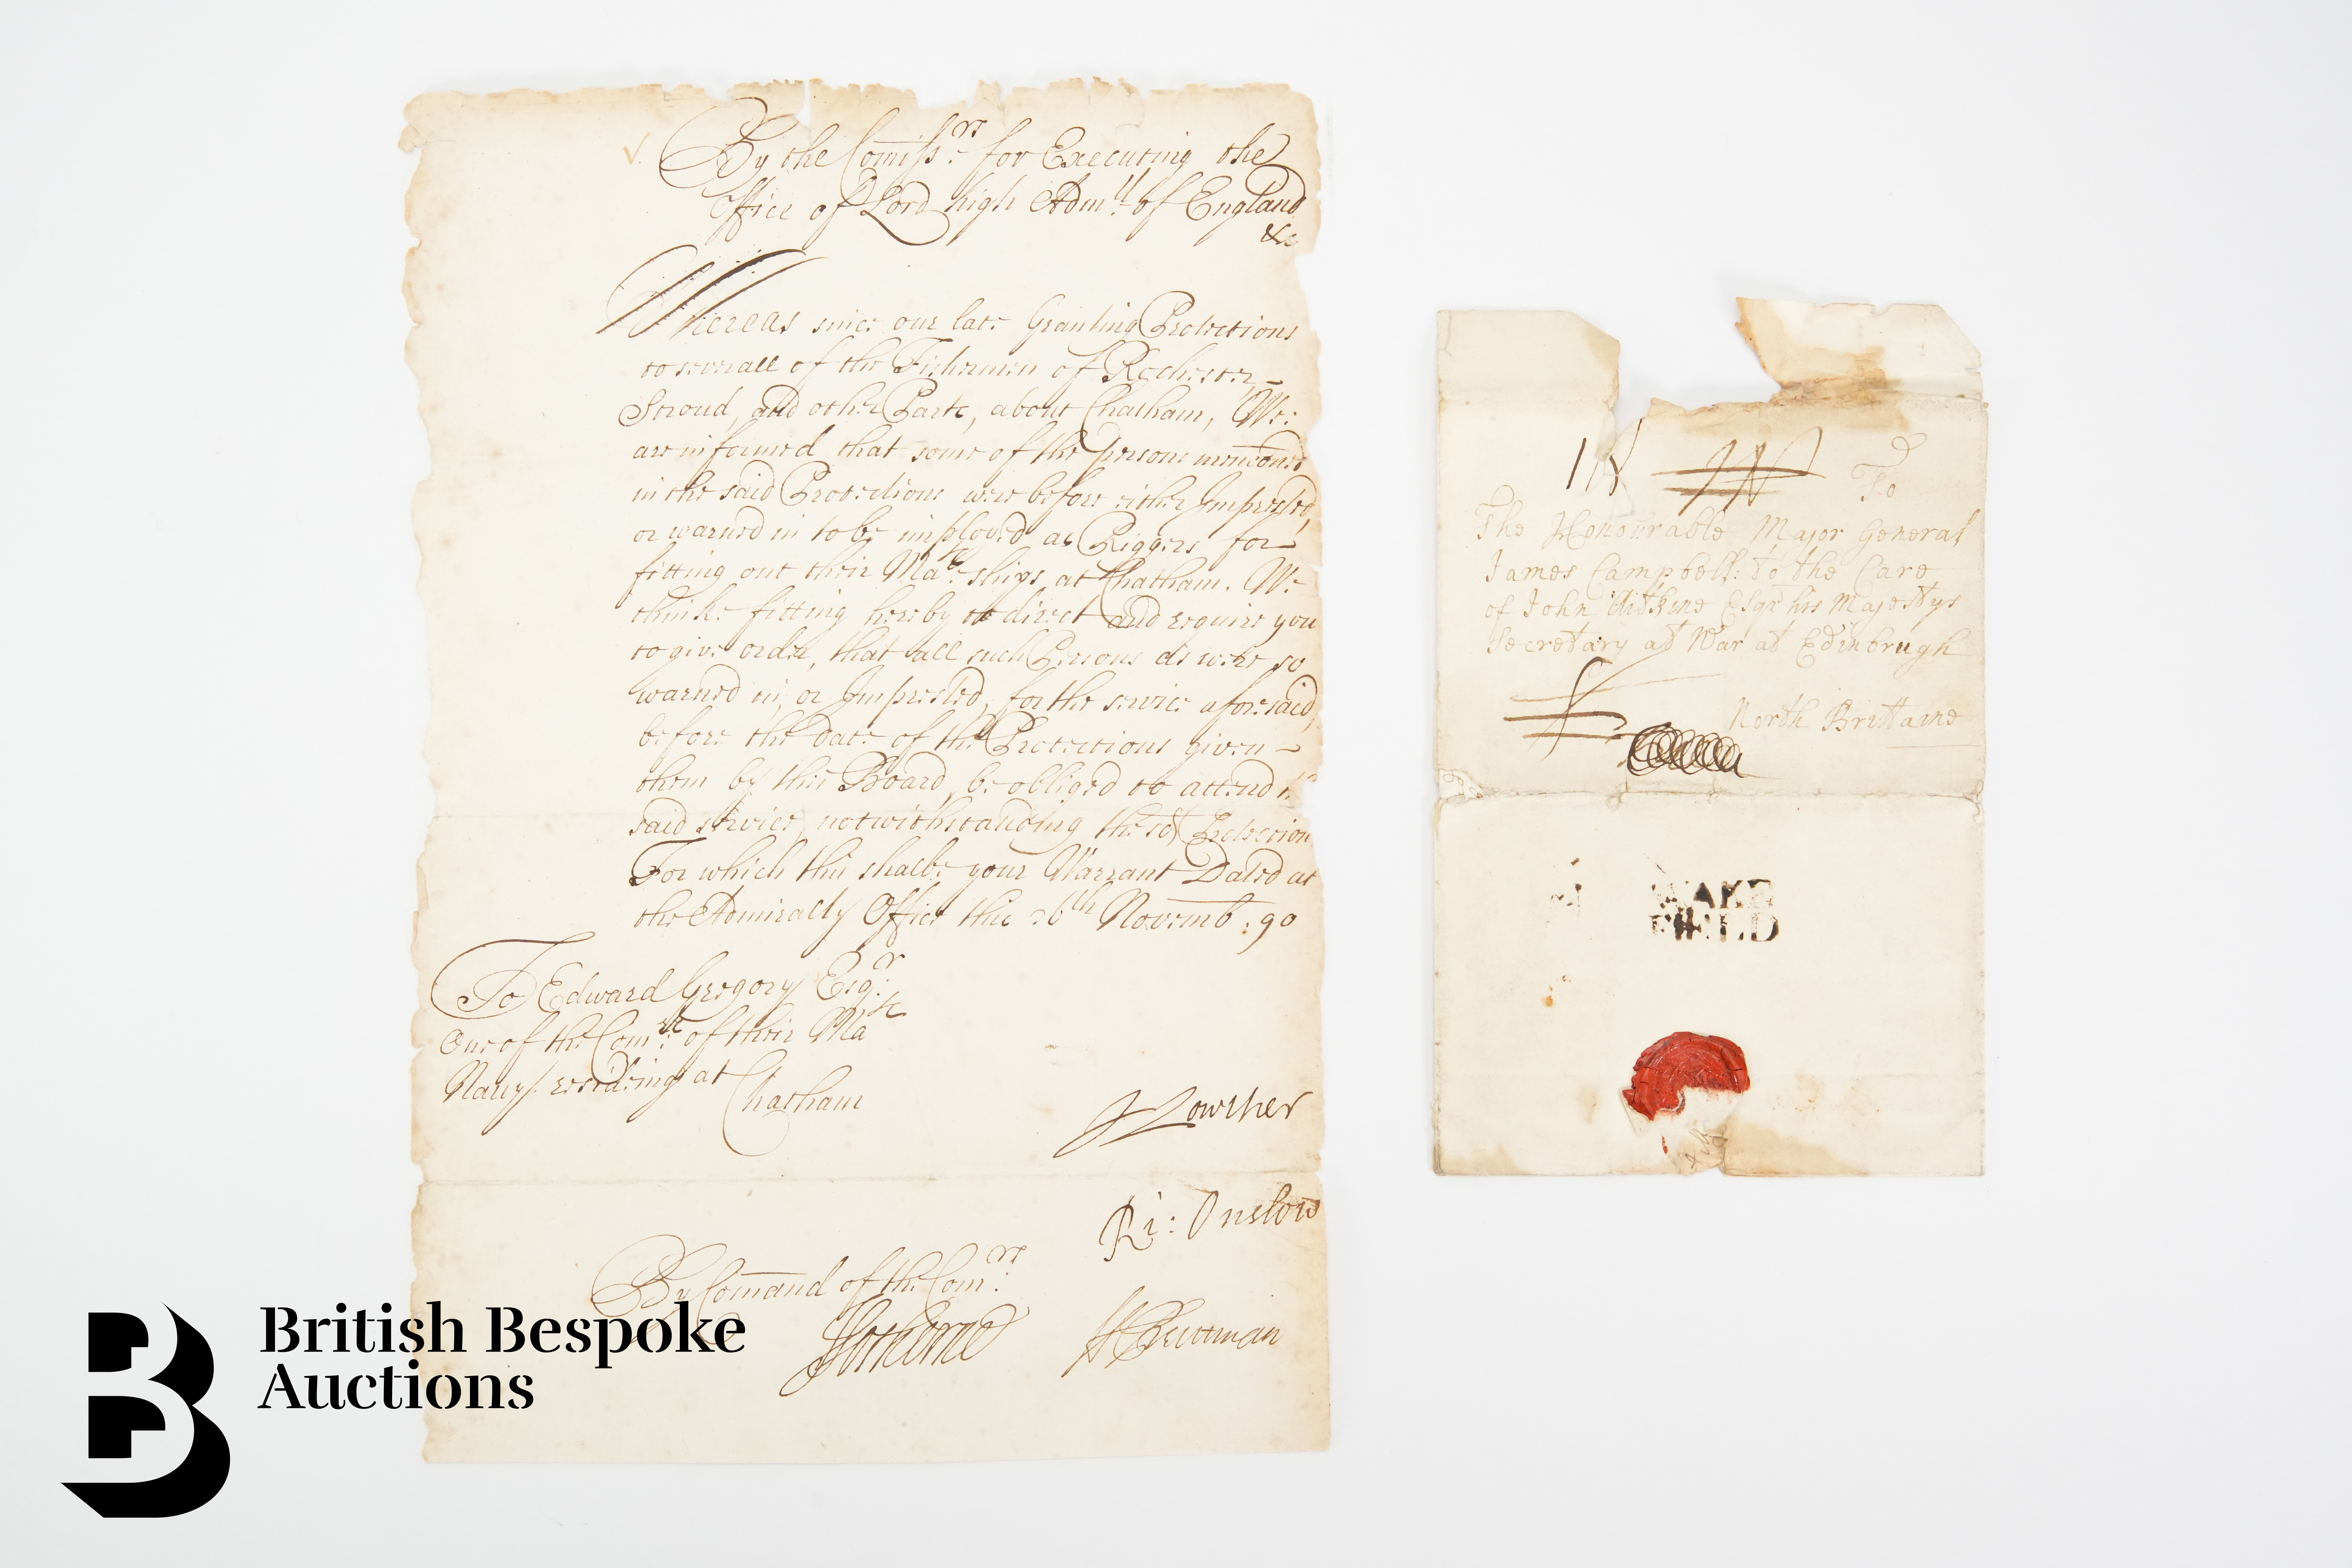 By the Comiss:rs for Executing the
Office of Lord high Adm:ll of England
&c
Whereas since our late Granting Protections
to severall of the Fishermen of Rochester
Stroud, and other Parts, about Chatham, We
are informed that some of the persons mentioned
in the said Protections were before either Impressed,
or warned in to be imployed as Riggers for
fitting out their Ma:ts ships at Chatham. We
thinke fitting hereby to direct and require you
to give order, that all such Persons as were so
warned in, or Impressed, for the service aforesaid,
before the Date of the Protections given
them by this Board, be obliged to attend
said service, notwithstanding the sd Protection
For which this shalbe your Warrant Dated at
the Admiralty Office this 26th Novemb: 90
To Edward Gregory Esq:r
One of the Com:rs of their Mats
Navy residing at
Chatham
JLowther
Ri: Onslow
By Comand of the Com:rs
JSotherne
HPriestman
To
The Honourable Major General
James Campbell: to the Care
of John Esqr his Majestys
Secretary at War at Edinbrugh
North Brittaine
WAKE
FIELD
British Bespoke
Auctions